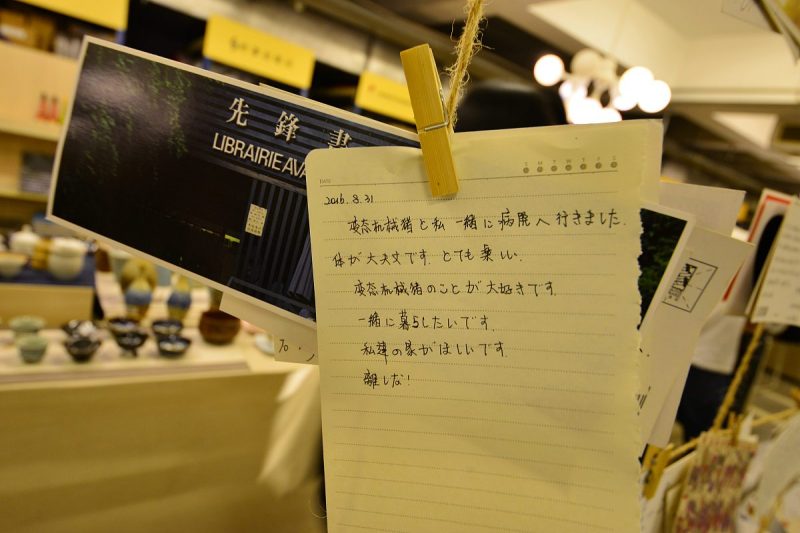 先鋒書
LIBRAIRIE AVA
DATE
S M T W T F S
2016.8.31
変态机械猪と私一緒に病院へ行きました.
体が大丈夫です. とても楽しい.
変态机械猪のことが大好きです.
一緒に暮らしたいです.
私達の家がほしいです.
離しな!